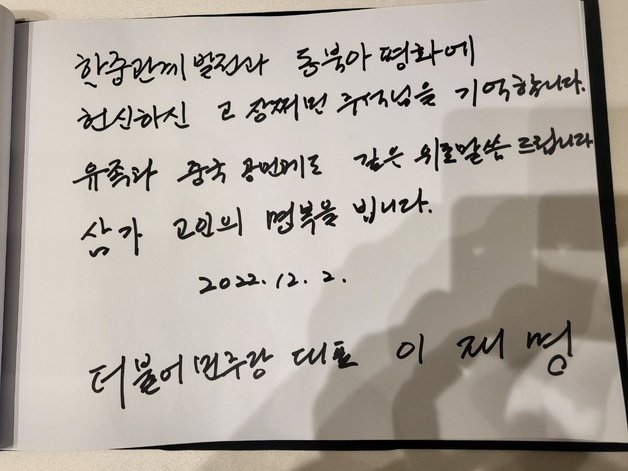 한중관계 발전과 동북아 평화에
헌신하신 고 장쩌민 주석님을 기억합니다.
유족과 중국 공민께도 깊은 위로말씀 드립니다
삼가 고인의 명복을 빕니다.
2022.12.2.
더불어민주당 대표 이재명